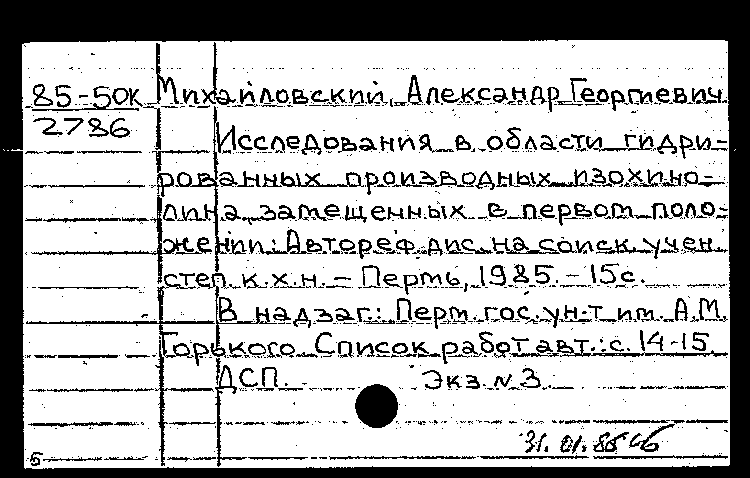 85-50к Михайловский, Александр Георгиевич
2786
Исследования в области гидри-
рованных производных изохино-
лина, замещенных в первом поло-
жении: Автореф. дис. на соиск. учен.
степ. к.х.н. – Пермь, 1985. – 15с.
В надзаг.: Перм. гос. ун-т им. А.М.
Горького. Список работ авт.: с. 14-15.
ДСП. Экз. N 3.
31. 01. 86
5